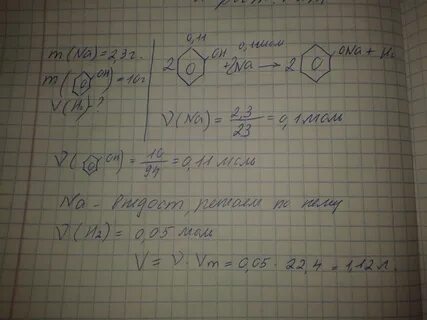 m(Na)=2,3г.
m(OH)=10г
V(H₂)-?
0,11 0,1моль
2 OH + 2Na → 2 ONa + H₂
ν(Na) = 2,3/23 = 0,1 моль
ν(OH) = 10/94 = 0,11 моль
Na - в недост, решаем по нему
ν(H₂) = 0,05 моль
V = ν · Vm = 0,05 · 22,4 = 1,12л.